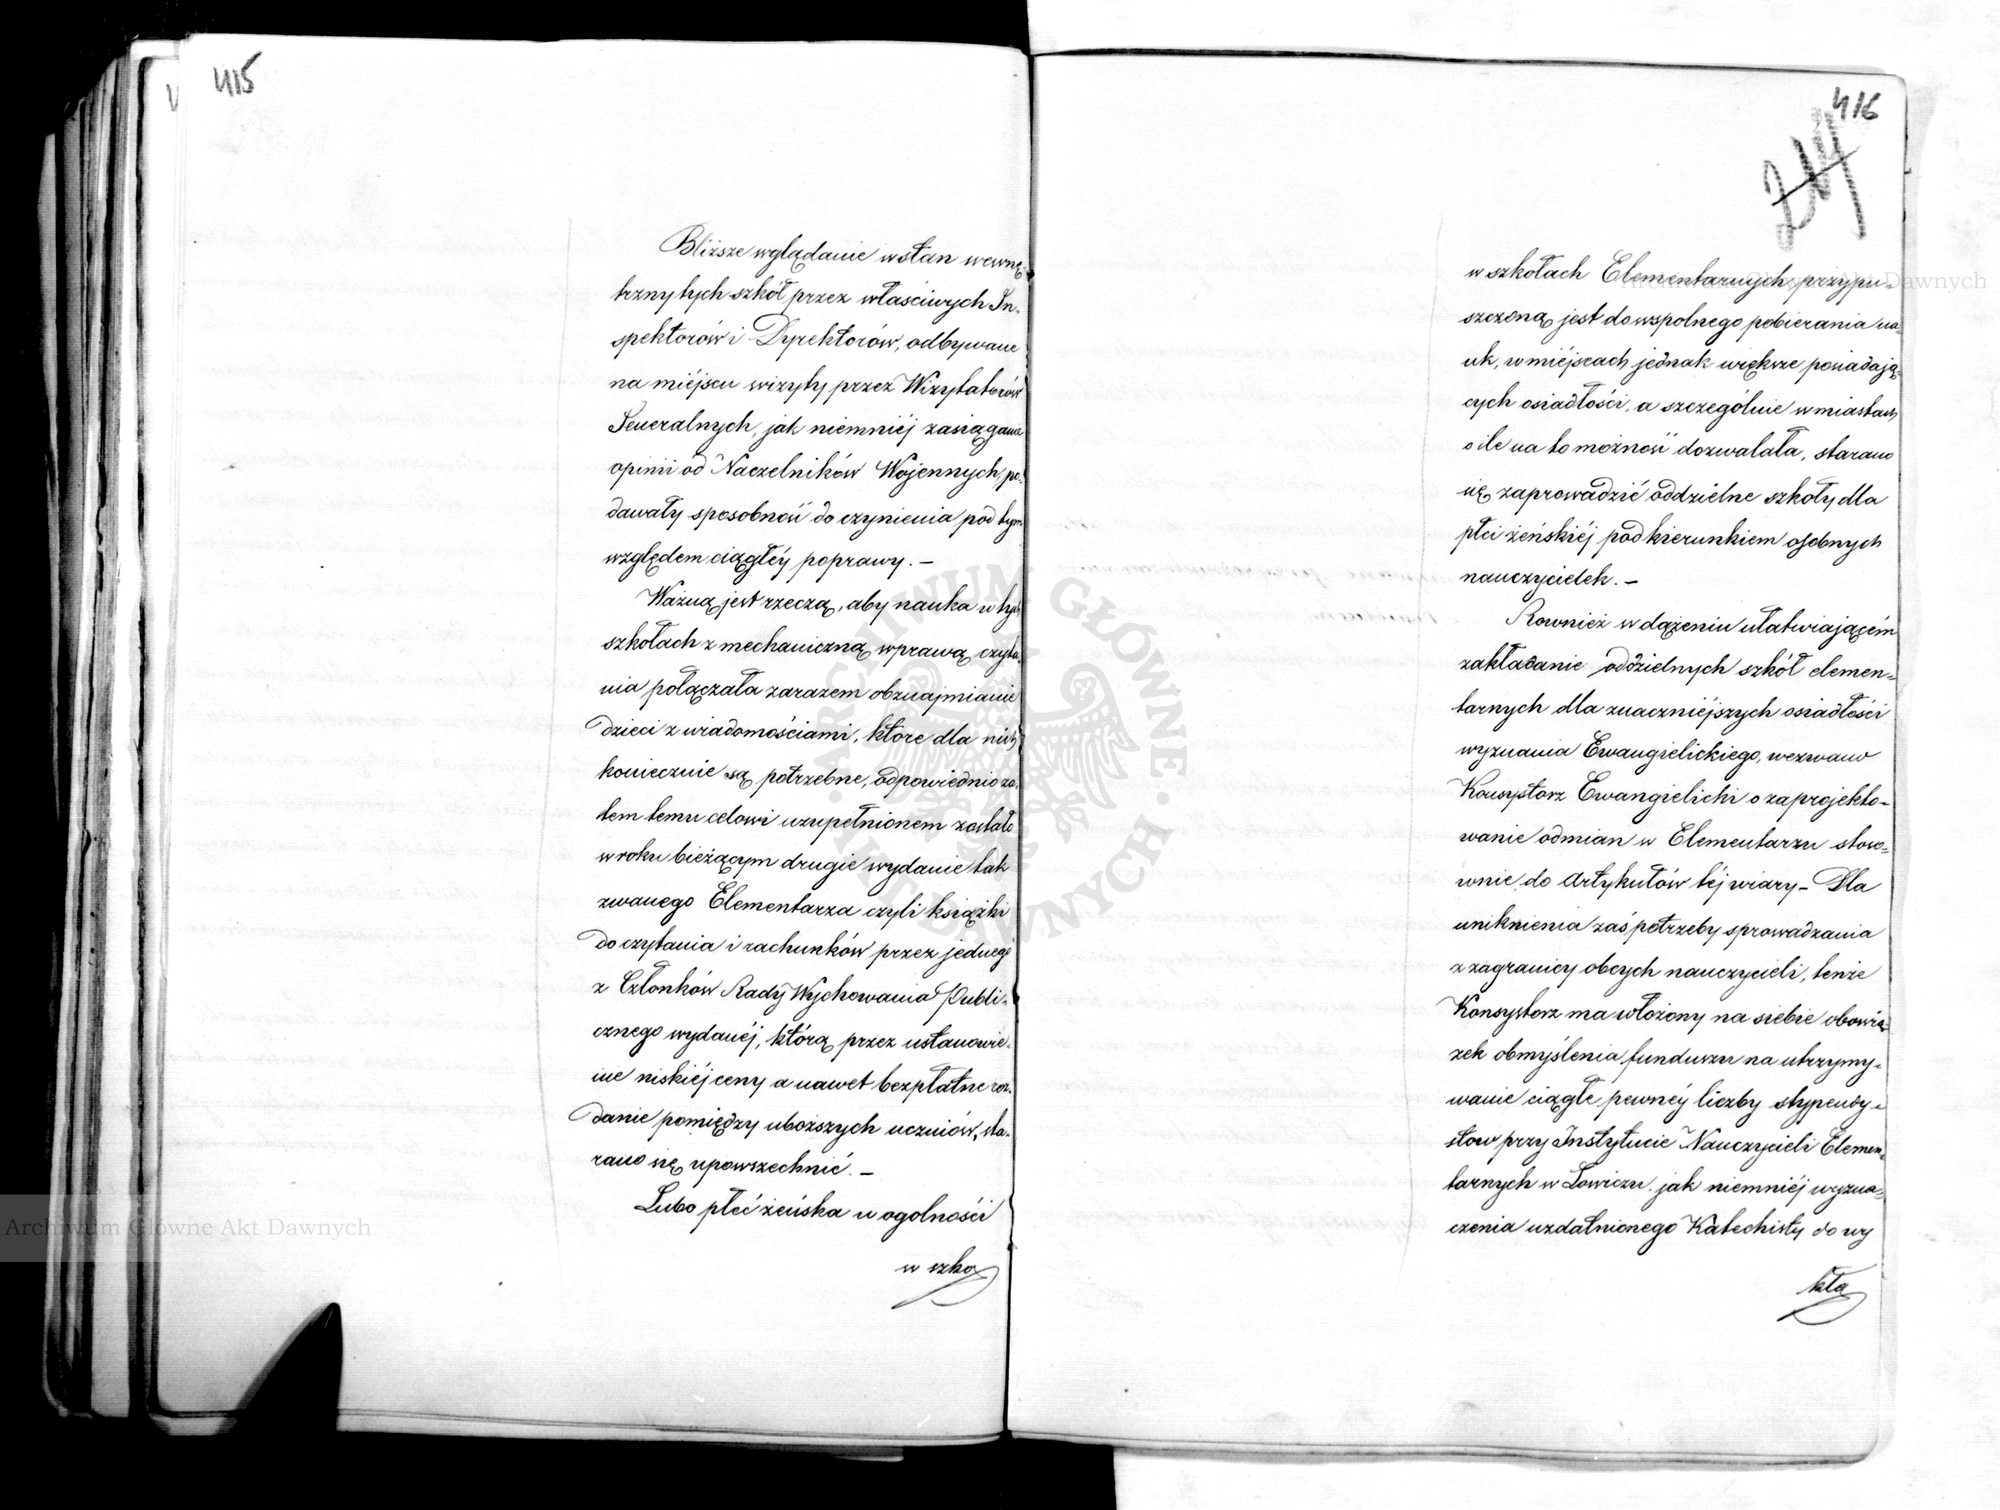 415
Bliższe wglądanie w stan wewnę-
trzny tych szkół przez właściwych In-
spektorów i Dyrektorów, odbywane
na miéjscu wizyty przez Wizytatorów
Jeneralnych, jak niemniéj zasiąganie
opinii od Naczelników Wojennych, po-
dawały sposobność do czynienia pod tym
względem ciągłéy poprawy. –
Ważną jest rzeczą, aby nauka w tych
szkołach z mechaniczną wprawą czyta-
nia połączała zarazem obznajmianie
dzieci z wiadomościami, które dla nich
koniecznie są potrzebne, odpowiednio za-
tem temu celowi uzupełnionem zostało
w roku bieżącym drugie wydanie tak
zwanego Elementarza czyli książki
do czytania i rachunków przez jednego
z Członków Rady Wychowania Publi-
cznego wydanéj, którą przez ustanowie-
nie niskiéj ceny a nawet bezpłatne roz-
danie pomiędzy uboższych uczniów, sta-
rano się upowszechnić. –
Lubo płeć żeńska w ogolności
w szko
416
214
w szkołach Elementarnych przypu-
szczoną jest do wspolnego pobierania na-
uk, w miéjscach jednak większe posiadają-
cych osiadłości, a szczególnie w miastach
o ile na to możność dozwalała, starano
się zaprowadzić oddzielne szkoły dla
płci żeńskiéj pod kierunkiem osobnych
nauczycielek. –
Rownież w dążeniu ułatwiającém
zakładanie oddzielnych szkół elemen-
tarnych dla znaczniéjszych osiadłości
wyznania Ewangielickiego, wezwano
Konsystorz Ewangielicki o zaprojekto-
wanie odmian w Elementarzu stoso-
wnie do Artykułów téj wiary – Dla
uniknienia zaś potrzeby sprowadzania
z zagranicy obcych nauczycieli, tenże
Konsystorz ma włożony na siebie obowią-
zek obmyślenia funduszu na utrzymy-
wanie ciągłe pewnéy liczby stypendy-
stow przy Instytucie Nauczycieli Elemen-
tarnych w Łowiczu, jak niemniéj wyzna-
czenia uzdatnionego Katechisty do wy
kła
Archiwum Główne Akt Dawnych
Główne Akt Dawnych
ARCHIWUM GŁÓWNE AKT DAWNYCH